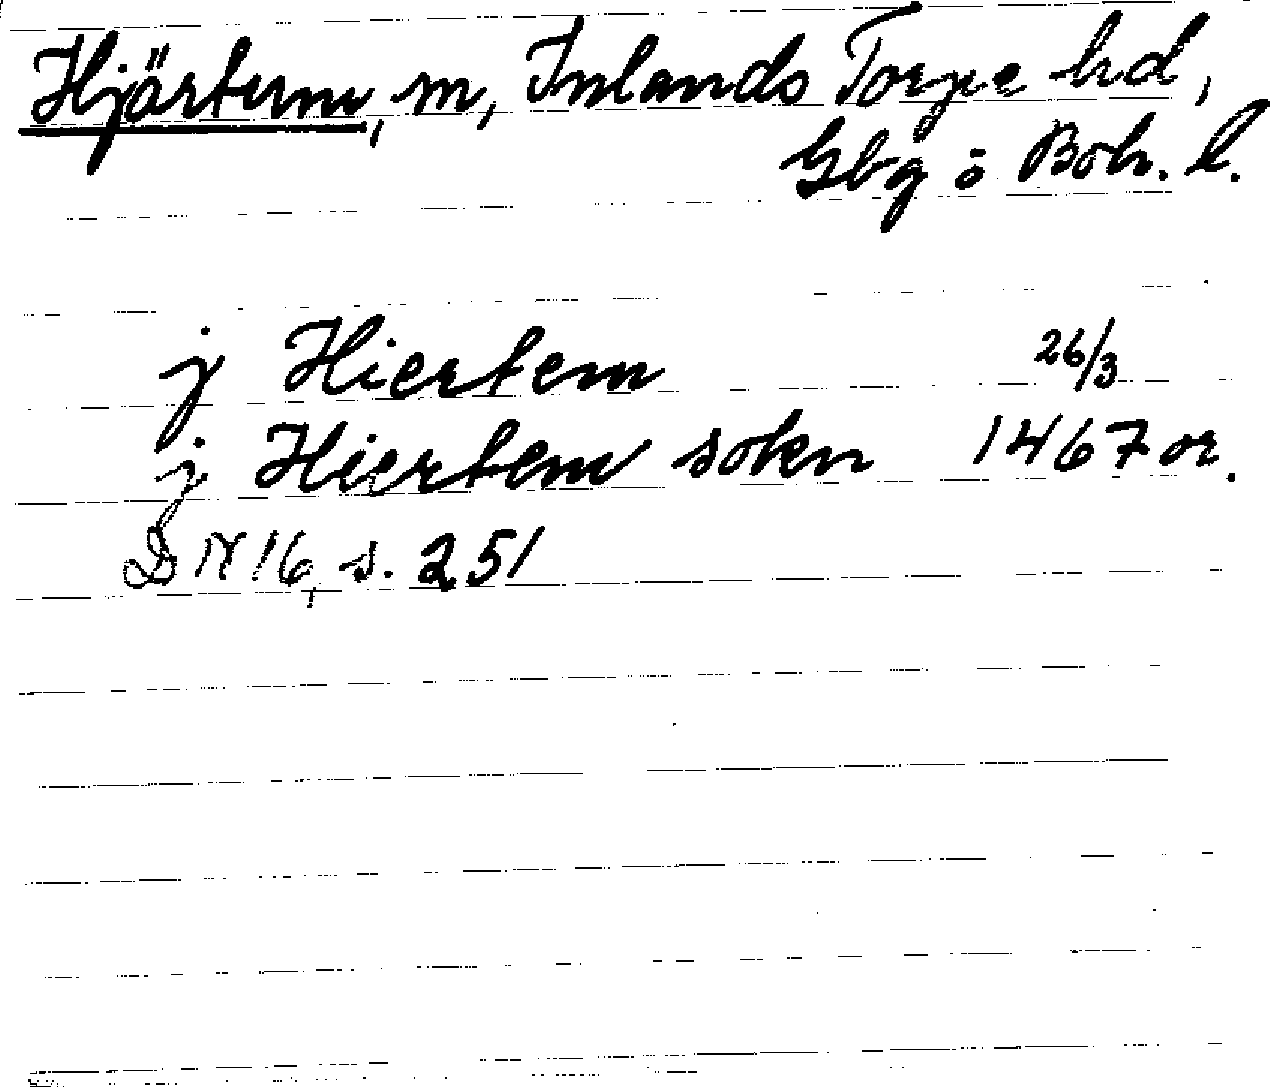 Hjärtum, sn, Inlands Torpe hd,
Gbg o Boh. l.
j Hiertem 26/3
j Hiertem sokn 1467 or.
DN 16, s. 251